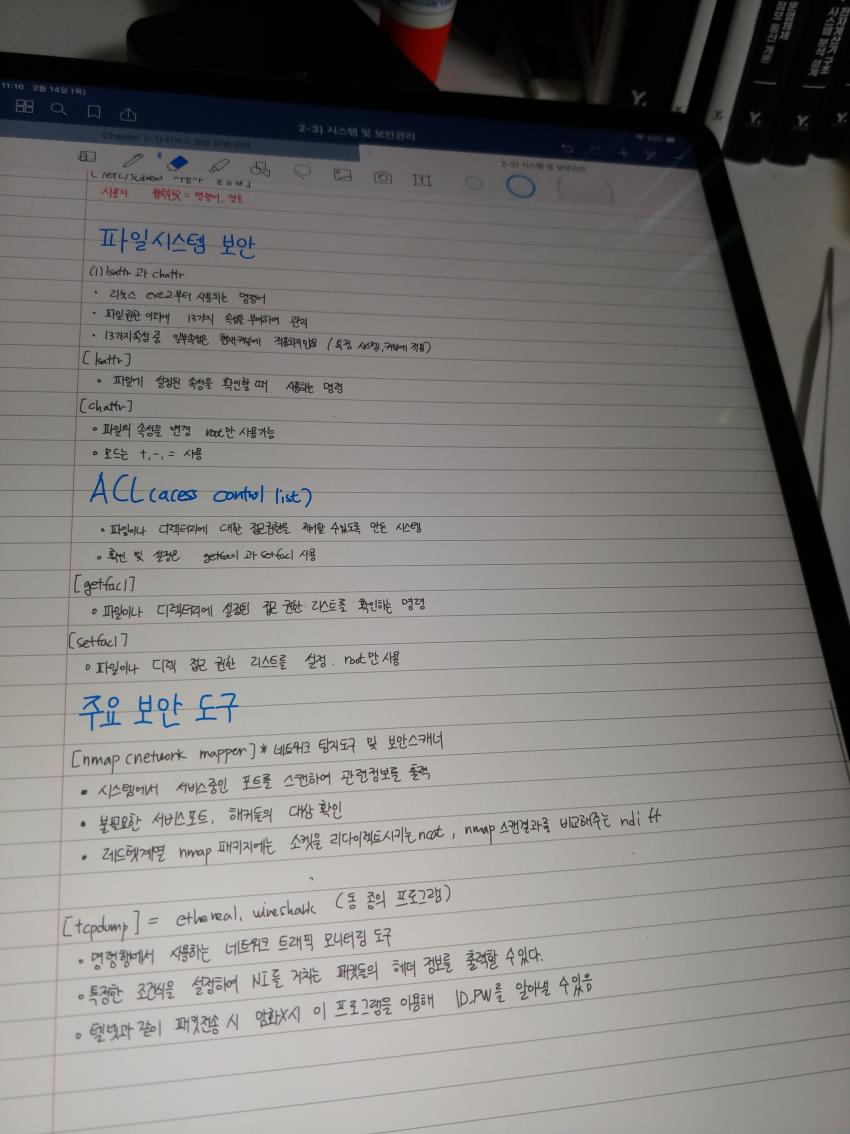 11:16 2월 14일 (목)
2-3) 시스템 및 보안관리
Chapter 2-1) 리눅스 일반 운영 관리
2-3) 시스템 및 보안관리
사용자 = 명령어_경로
파일시스템 보안
(1) lsattr 과 chattr
· 리눅스 ext2부터 사용되는 명령어
· 파일권한 이외에 13가지 속성을 부여하여 관리
· 13가지속성 중 일부속성은 현재커널에 (특정 시스템, 커널에 적용)
[lsattr]
• 파일에 설정된 속성을 확인할 때 사용하는 명령
[chattr]
• 파일의 속성을 변경 root만 사용가능
• 모드는 +, -, = 사용
ACL (acess control list)
• 파일이나 디렉터리에 대한 접근권한을 제어할 수있도록 만든 시스템
• 확인 및 설정은 getfacl 과 setfacl 사용
[getfacl]
• 파일이나 디렉터리에 설정된 접근 권한 리스트를 확인하는 명령
[setfacl]
• 파일이나 디렉 접근 권한 리스트를 설정. root만 사용
주요 보안 도구
[nmap (network mapper] * 네트워크 탐지도구 및 보안스캐너
• 시스템에서 서비스중인 포트를 스캔하여 관련정보를 출력
• 불필요한 서비스포트, 해커들의 대상 확인
• 레드햇계열 nmap 패키지에는 소켓을 리다이렉트시키는 ncat, nmap 스캔결과를 비교해주는 ndiff
[tcpdump] = ethereal, wireshark (동 종의 프로그램)
• 명령행에서 사용하는 네트워크 트래픽 모니터링 도구
• 특정한 조건식을 설정하여 NI를 거치는 패킷들의 헤더 정보를 출력할 수있다.
• 텔넷과 같이 패킷전송 시 암화X시 이 프로그램을 이용해 ID.PW를 알아낼 수있음
운영체제
정보 통신 개론
전자계산기 구조
시스템 분석 설계